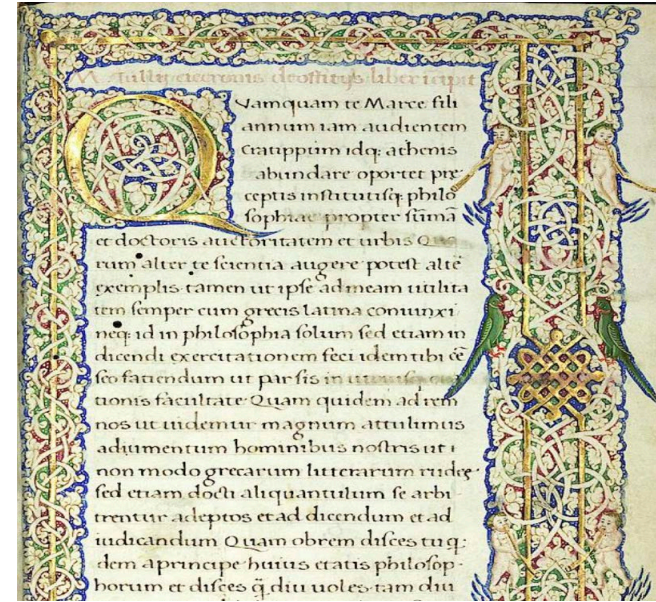 M Tullii ciceronis de offitijs liber icipit
Quamquam te Marce fili
annum iam audientem
Cratippum idq; athenis
abundare oportet pre
ceptis institutisq; philo
sophiae propter sũmã
et doctoris auctoritatem et urbis Quo
rum alter te scientia augere potest altẽ
exemplis tamen ut ipse ad meam utilita
tem semper cum grecis latina coniunxi
neq; id in philosophia solum sed etiam in
dicendi exercitationem feci idem tibi cẽ
seo fatiendum ut par sis in utriusq;
tionis facultate Quam quidem ad rem
nos ut uidemur magnum attulimus
adiumentum hominibus nostris ut
non modo grecarum litterarum rudes
sed etiam docti aliquantulum se arbi
trentur adeptos et ad dicendum et ad
iudicandum Quam obrem disces tu q;
dem a principe huius etatis philosop
horum et disces q̃ diu uoles tam diu